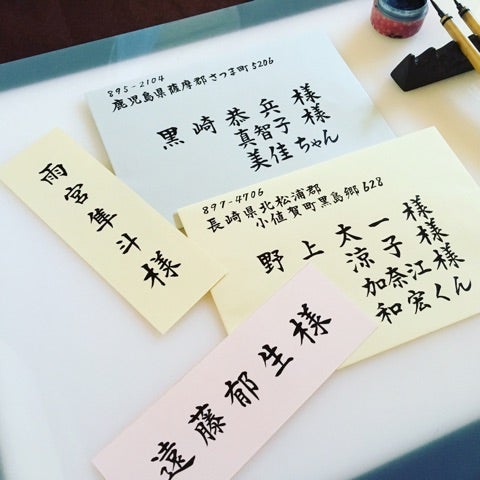 895-2104
鹿児島県薩摩郡さつま町5206
黒崎恭兵様
真智子様
美佳ちゃん
雨宮隼斗様
897-4706
長崎県北松浦郡
小値賀町黒島郷628
野上太一様
涼子様
加奈江様
和宏くん
遠藤郁生様